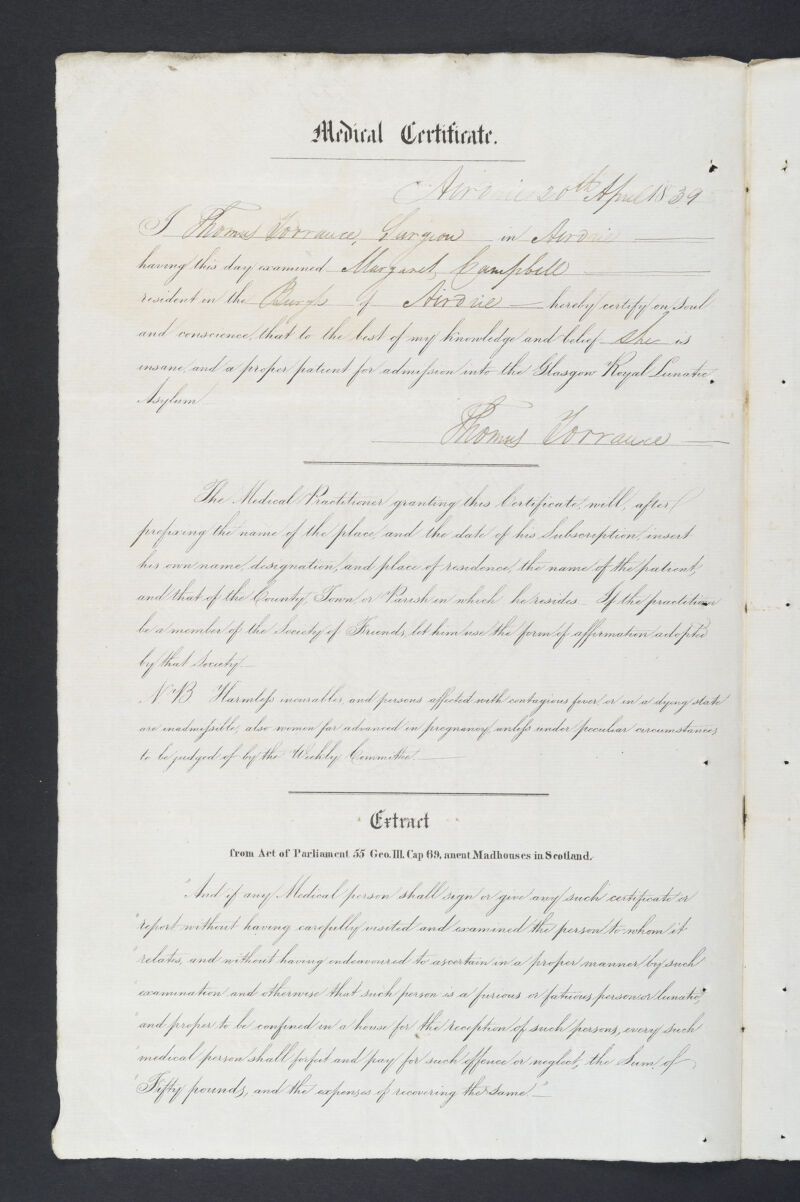 Medical Certificate.
Airdrie 20th April 1839
I Thomas Torrance, Surgeon in Airdrie
having this day examined Margaret Campbell
resident in the Burgh of Airdrie hereby certify on soul
and conscience, that to the best of my knowledge and belief she is
insane, and a proper patient for admission into the Glasgow Royal Lunatic
Asylum
Thomas Torrance
The Medical Practitioner granting this Certificate, will, after
prefixing the name of the place, and the date of his Subscription, insert
his own name, designation, and place of residence, the name of the patient,
and that of the County, Town, or Parish in which he resides. If the practitioner
be a member of the Society of Friends, let him use the form of affirmation adopted
by that Society
N.B. Harmless incurables, and persons affected with contagious fever, or in a dying state
are inadmissible; also women far advanced in pregnancy, unless under peculiar circumstances
to be judged of by the Weekly Committee.
Extract
from Act of Parliament 55 Geo. III. Cap 69, anent Madhouses in Scotland.
"And if any Medical person shall sign or give any such certificate or
"report without having carefully visited and examined the person to whom it
"relates, and without having endeavoured to ascertain in a proper manner by such
"examination and otherwise that such person is a furious or fatuous person or lunatic,
"and proper to be confined in a house for the reception of such persons, every such
"medical person shall forfeit and pay for such offence or neglect, the Sum of
"Fifty pounds, and the expenses of recovering the same."